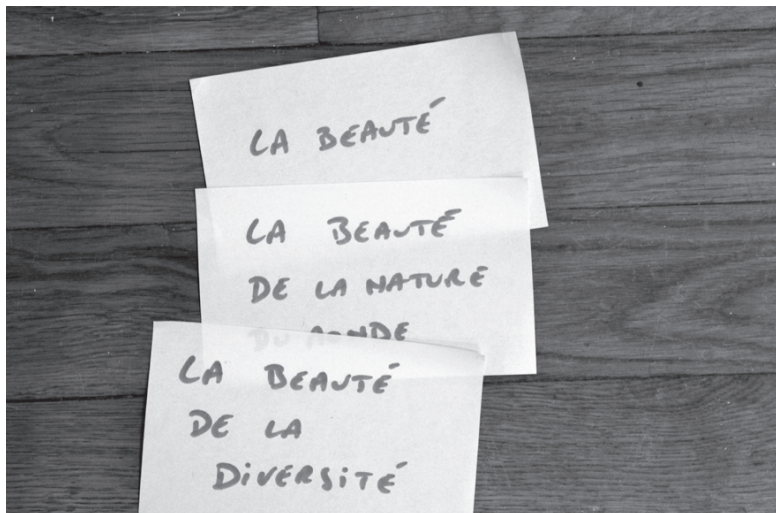 LA BEAUTÉ
LA BEAUTÉ
DE LA NATURE
DU MONDE
LA BEAUTÉ
DE LA
DIVERSITÉ